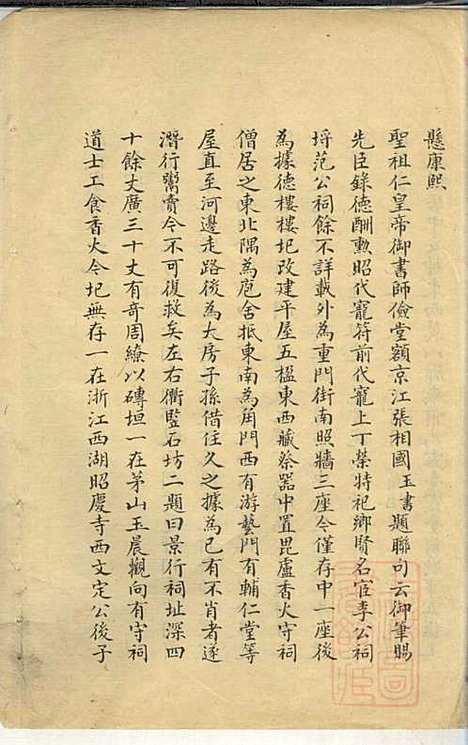 懸康熙
聖祖仁皇帝御書師儉堂額京江張相國玉書題聯句云御筆賜
先臣錄德酬勲昭代寵符前代寵上丁榮特祀鄉賢名宦李公祠
埒范公祠餘不詳載外為重門街南照牆三座令僅存中一座後
為據德樓樓圮改建平屋五楹東西藏祭器中置毘盧香火守祠
僧居之東北隅為庖舍抵東南為角門西有游藝門有輔仁堂等
屋直至河邊走路後為大房子孫借住久之據為已有不肖者遂
潛行鬻賣今不可復救矣左右衢監石坊二題曰景行祠址深四
十餘丈廣三十丈有奇周繚以磚垣一在茅山玉晨觀向有守祠
道士工食香火今圮無存一在浙江西湖昭慶寺西文定公後子